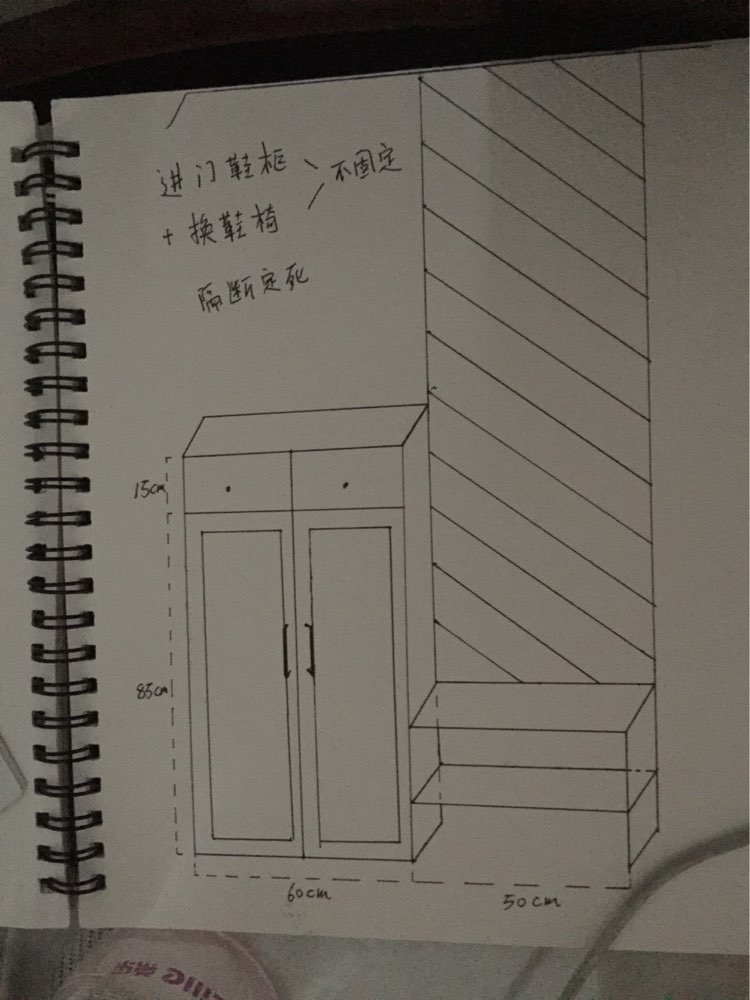 进门鞋框
不固定
+ 换鞋椅
隔断定死
15cm
85cm
60cm
50cm